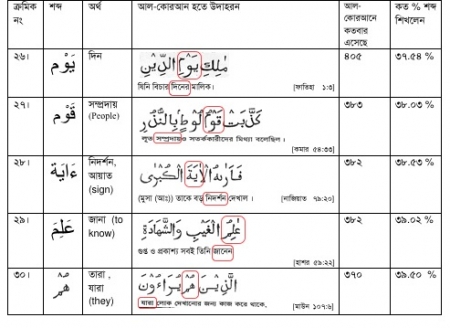 ক্রমিক নং শব্দ অর্থ আল-কোরআন হতে উদাহরন আল-কোরআনে কতবার এসেছে কত % শব্দ শিখলেন
২৬। يَوْم দিন مٰلِكِ يَوْمِ الدِّيْنِ ৪০৫ ৩৭.৫৪ %
যিনি বিচার দিনের মালিক। [ফাতিহা ১:৩]
২৭। قَوْم সম্প্রদায় (People) كَذَّبَتْ قَوْمُ لُوْطٍ بِالنُّذُرِ ৩৮৩ ৩৮.০৩ %
লূত সম্প্রদায়ও সতর্ককারীদের মিথ্যা বলেছিল।
[কমার ৫৪:৩৩]
২৮। ءَايَة নিদর্শন, আয়াত (sign) فَاَرٰىهُ الْاٰيَةَ الْكُبْرٰى ৩৮২ ৩৮.৫৩ %
(মুসা (আঃ)) তাকে বড় নিদর্শন দেখাল।
[নাজিয়াত ৭৯:২০]
২৯। عَلِمَ জানা (to know) عٰلِمُ الْغَيْبِ وَالشَّهَادَةِ ৩৮২ ৩৯.০২ %
গুপ্ত ও প্রকাশ্য সবই তিনি জানেন
[হাশর ৫৯:২২]
৩০। هُمْ তারা , যারা (they) الَّذِيْنَ هُمْ يُرَآءُوْنَ ৩৭০ ৩৯.৫০ %
যারা লোক দেখানোর জন্য কাজ করে থাকে,
[মাউন ১০৭:৬]